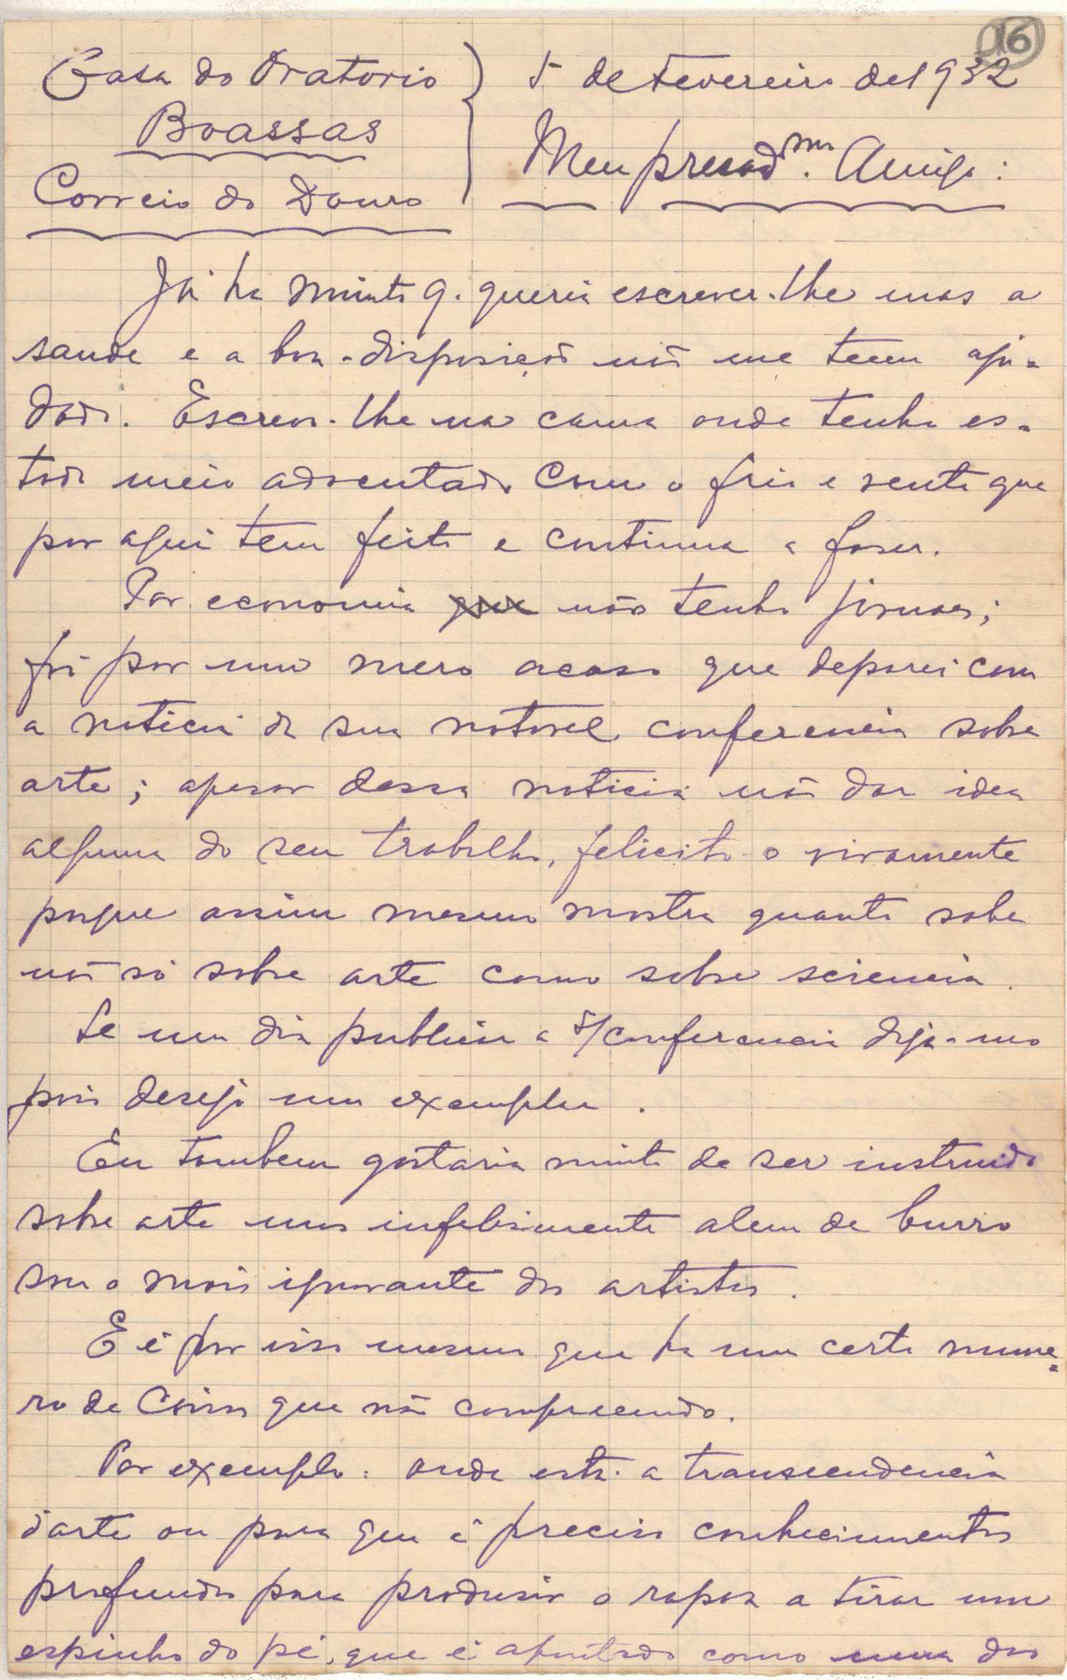 16
Casa do Oratorio
Boassas
Correio do Douro
5 de Fevereiro de 1932
Meu presadmo. Amigo:
Já ha muito q. queria escrever-lhe mas a
saude e a boa-disposição não me teem aju-
dado. Escrevo-lhe na cama onde tenho es-
tado meio adoentado com o frio e vento que
por aqui tem feito e continua a faser.
Por economia não tenho jornaes;
foi por um mero acaso que deparei com
a noticia da sua notavel conferencia sobre
arte; apesar dessa noticia não dar idea
alguma do seu trabalho, felicito-o vivamente
porque assim mesmo mostra quanto sabe
não só sobre arte como sobre sciencia.
Se um dia publicar a s/conferencia diga-mo
pois desejo um exemplar.
Eu tambem gostaria muito de ser instruido
sobre arte mas infelismente alem de burro
sou o mais ignorante dos artistas.
E é por isso mesmo que ha um certo nume-
ro de coisas que não compreendo.
Por exemplo: onde está a transcendencia
d'arte ou para que é preciso conhecimentos
profundos para produsir o rapaz a tirar um
espinho do pé, que é apontado como uma das